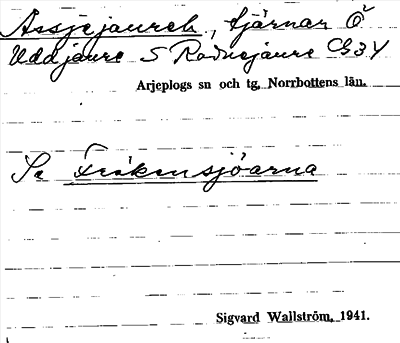 Assjejaureh, tjärnar Ö
Uddjaure S Radnejaure G34
Arjeplogs sn och tg, Norrbottens län.
Se Fräkensjöarna
Sigvard Wallström, 1941.